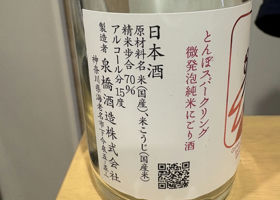 とんぼスパークリング
微発泡純米にごり酒
日本酒
原材料名 米(国産)、米こうじ(国産米)
精米歩合 70%
アルコール分 15度
製造者 泉橋酒造株式会社
神奈川県海老名市下今泉5丁目